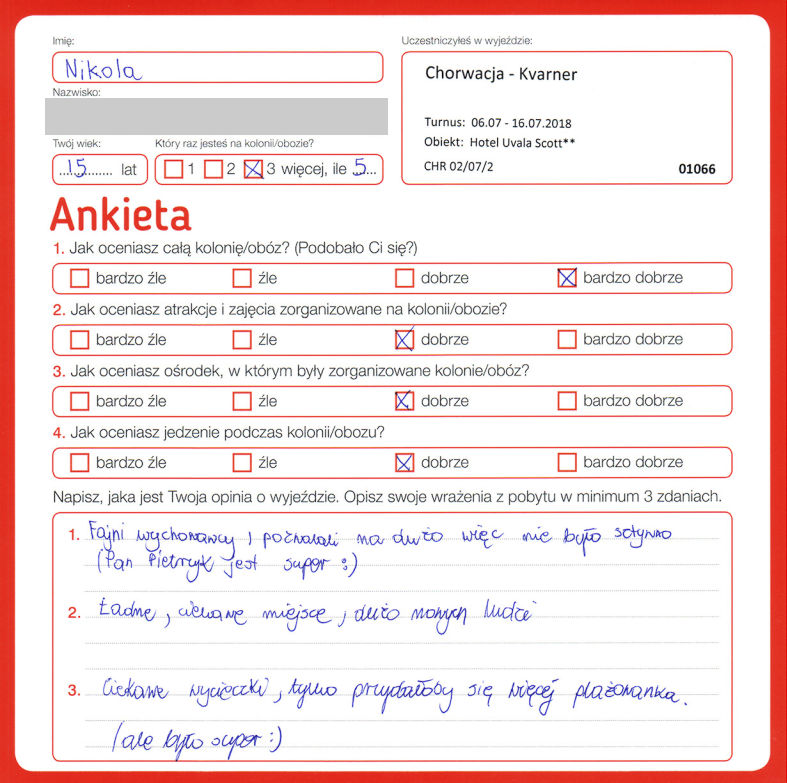 Imię:
Nikola
Nazwisko:
Twój wiek:
15 lat
Który raz jesteś na kolonii/obozie?
1 2 3 więcej, ile 5
Uczestniczyłeś w wyjeździe:
Chorwacja - Kvarner
Turnus: 06.07 - 16.07.2018
Obiekt: Hotel Uvala Scott**
CHR 02/07/2 01066
Ankieta
1. Jak oceniasz całą kolonię/obóz? (Podobało Ci się?)
bardzo źle źle dobrze bardzo dobrze
2. Jak oceniasz atrakcje i zajęcia zorganizowane na kolonii/obozie?
bardzo źle źle dobrze bardzo dobrze
3. Jak oceniasz ośrodek, w którym były zorganizowane kolonie/obóz?
bardzo źle źle dobrze bardzo dobrze
4. Jak oceniasz jedzenie podczas kolonii/obozu?
bardzo źle źle dobrze bardzo dobrze
Napisz, jaka jest Twoja opinia o wyjeździe. Opisz swoje wrażenia z pobytu w minimum 3 zdaniach.
1. Fajni wychowawcy, pozwalali na dużo więc nie było sztywno
(Pan Pietrzyk jest super :)
2. Ładne, ciekawe miejsce, dużo nowych ludzi
3. Ciekawe wycieczki, tylko przydałoby się więcej plażowanka.
(ale było super :)